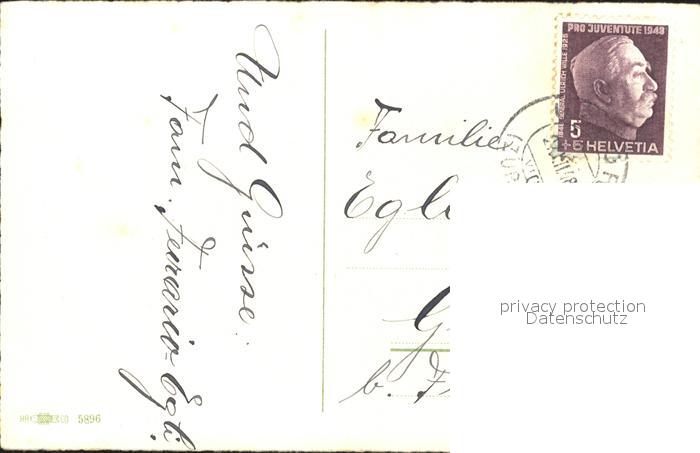 Und Grüsse:
Fam. Ferrario-Egli.
5896
Familie
Egli
G
b. F
PRO JUVENTUTE 1948
1848 GENERAL ULRICH WILLE 1925
5
+5 HELVETIA
privacy protection
Datenschutz